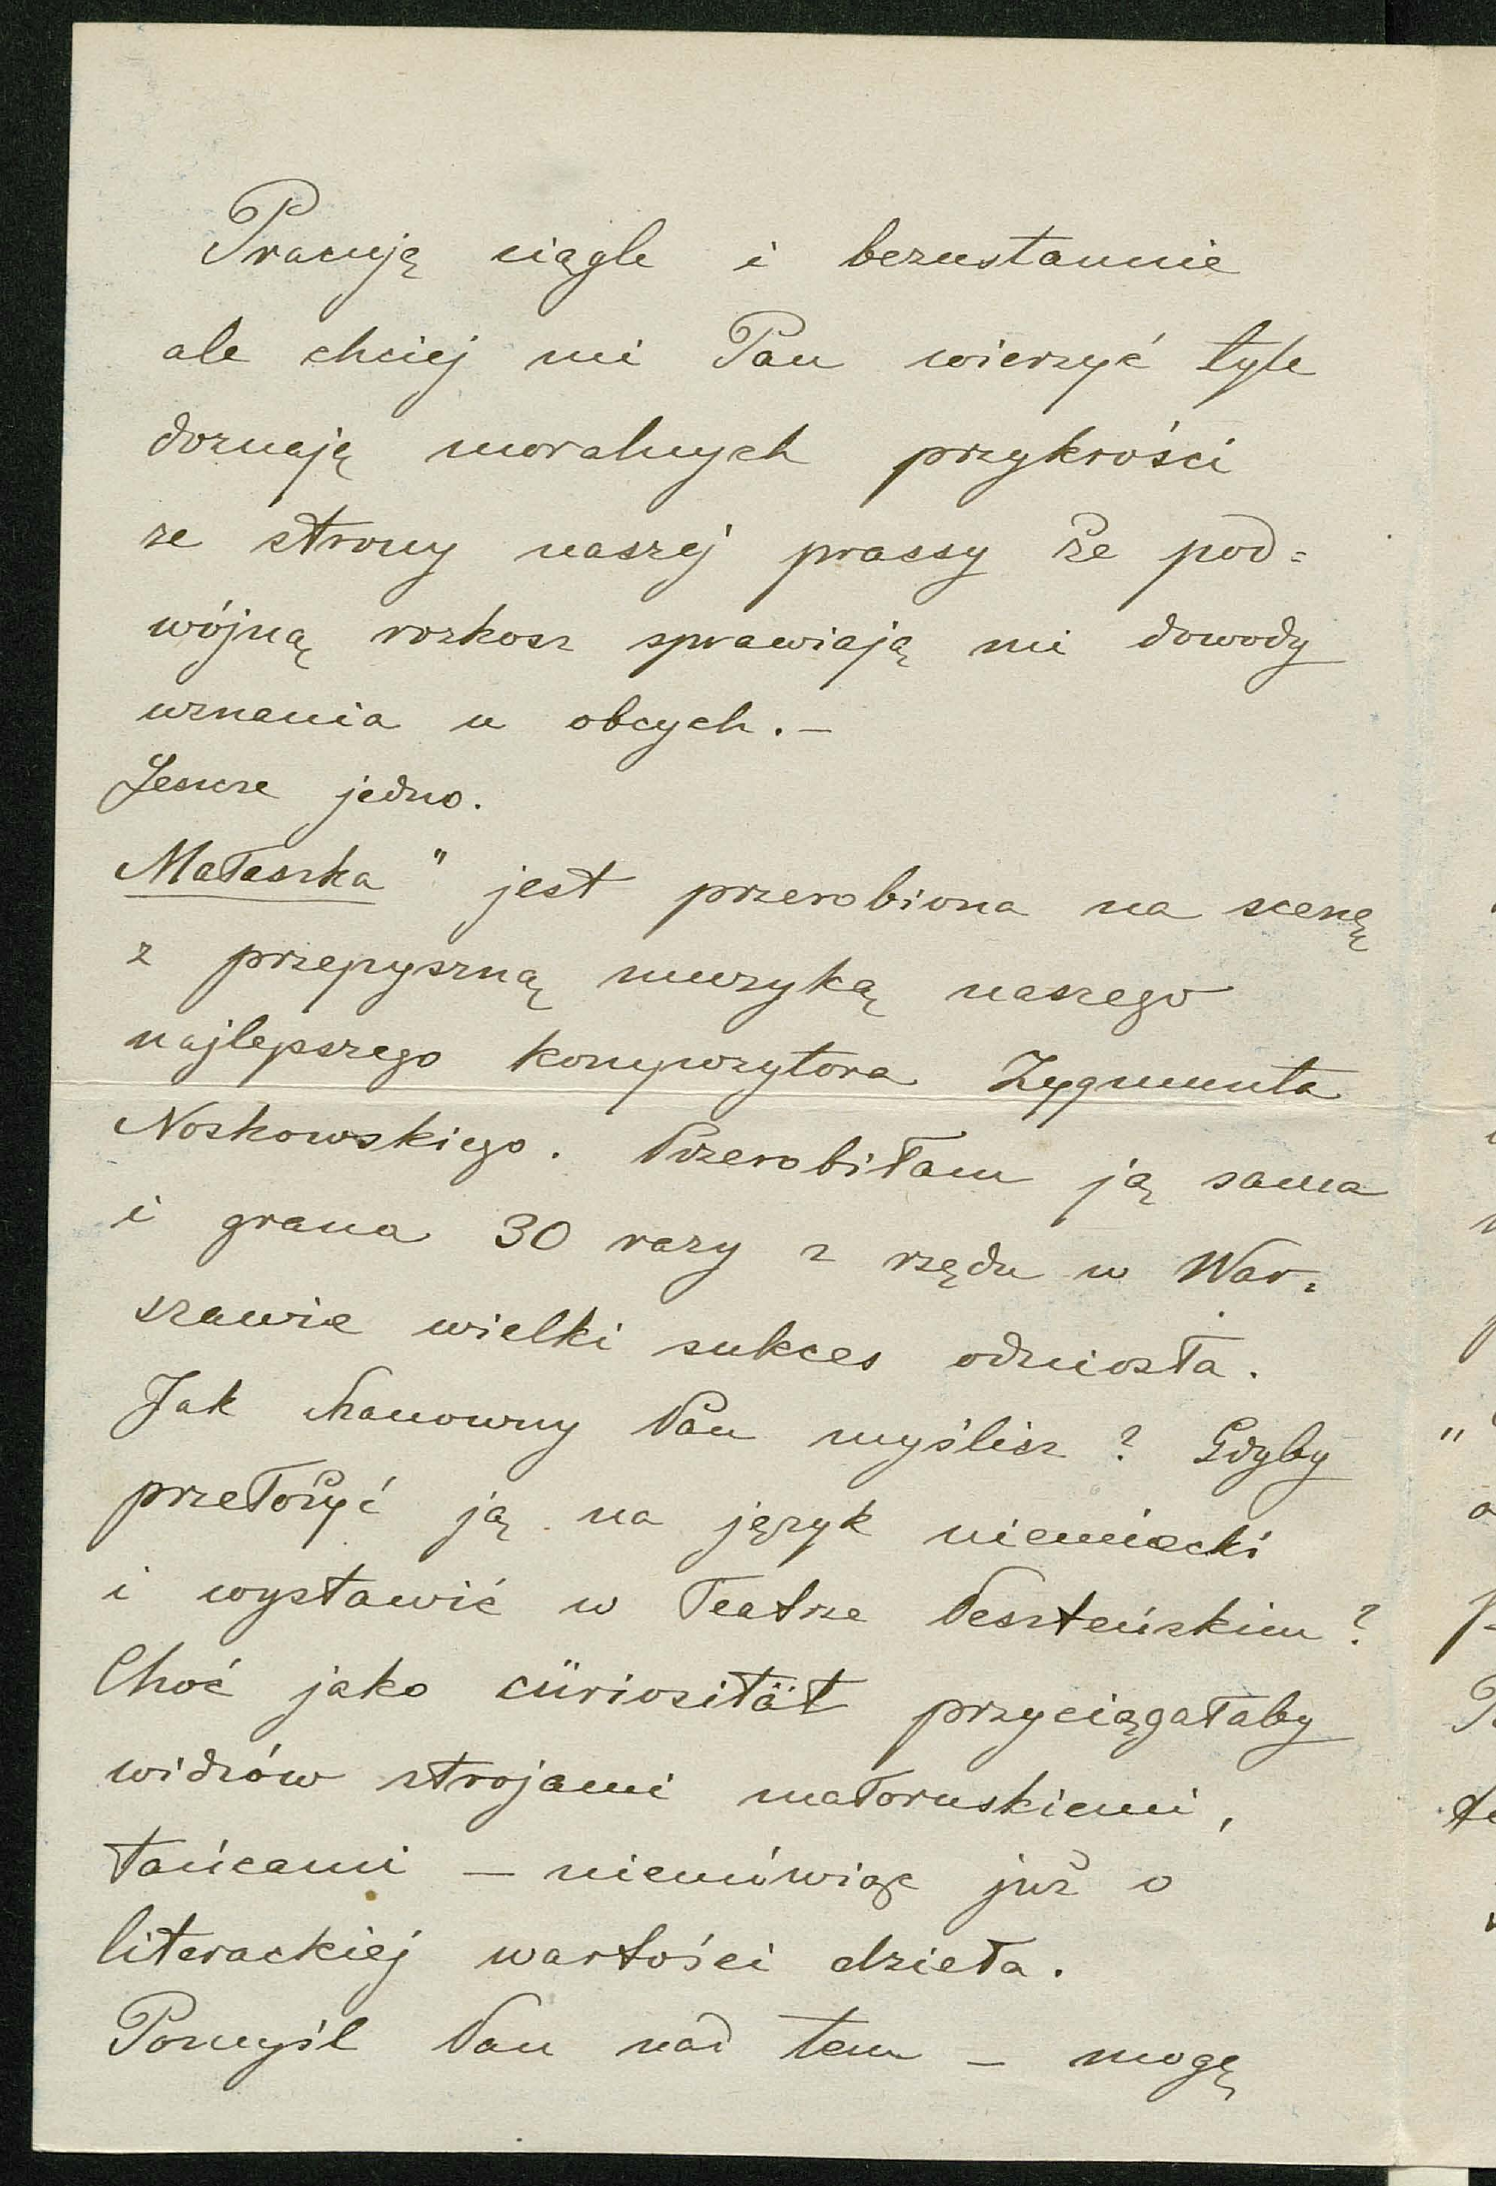 Pracuję ciągle i bezustannie
ale chciej mi Pan wierzyć tyle
doznaję moralnych przykrości
ze strony naszej prassy że pod=
wójną rozkosz sprawiają mi dowody
uznania u obcych. –
Jeszcze jedno.
Małaszka" jest przerobiona na scenę
z przepyszną muzyką naszego
najlepszego kompozytora Zygmunta
Noskowskiego. Przerobiłam ją sama
i grana 30 razy z rzędu w War=
szawie wielki sukces odniosła.
Jak Szanowny Pan myślisz? Gdyby
przełożyć ją na język niemiecki
i wystawić w Teatrze Peszteńskim?
Choć jako cüriosität przyciągałaby
widzów strojami małoruskiemi,
tańcami – niemówiąc już o
literackiej wartości dzieła.
Pomyśl Pan nad tem – mogę